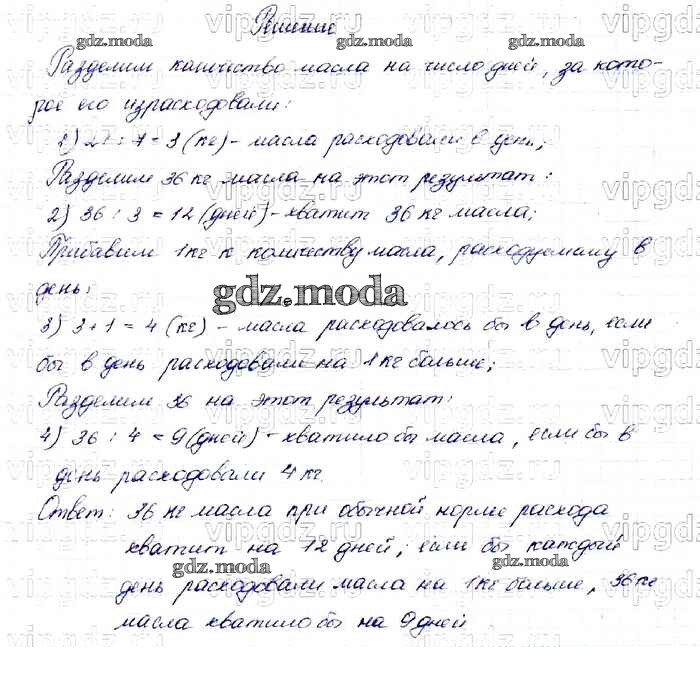 Решение
Разделим количество масла на число дней, за кото-
рое его израсходовали:
1) 21 : 7 = 3 (кг) - масла расходовали в день;
Разделим 36 кг масла на этот результат:
2) 36 : 3 = 12 (дней) - хватит 36 кг масла;
Прибавим 1 кг к количеству масла, расходуемому в
день:
gdz.moda
3) 3 + 1 = 4 (кг) - масла расходовалось бы в день, если
бы в день расходовали на 1 кг больше;
Разделим 36 на этот результат:
4) 36 : 4 = 9 (дней) - хватило бы масла, если бы в
день расходовали 4 кг.
Ответ: 36 кг масла при обычной норме расхода
хватит на 12 дней; если бы каждый
gdz.moda
день расходовали масла на 1 кг больше, 36 кг
масла хватило бы на 9 дней